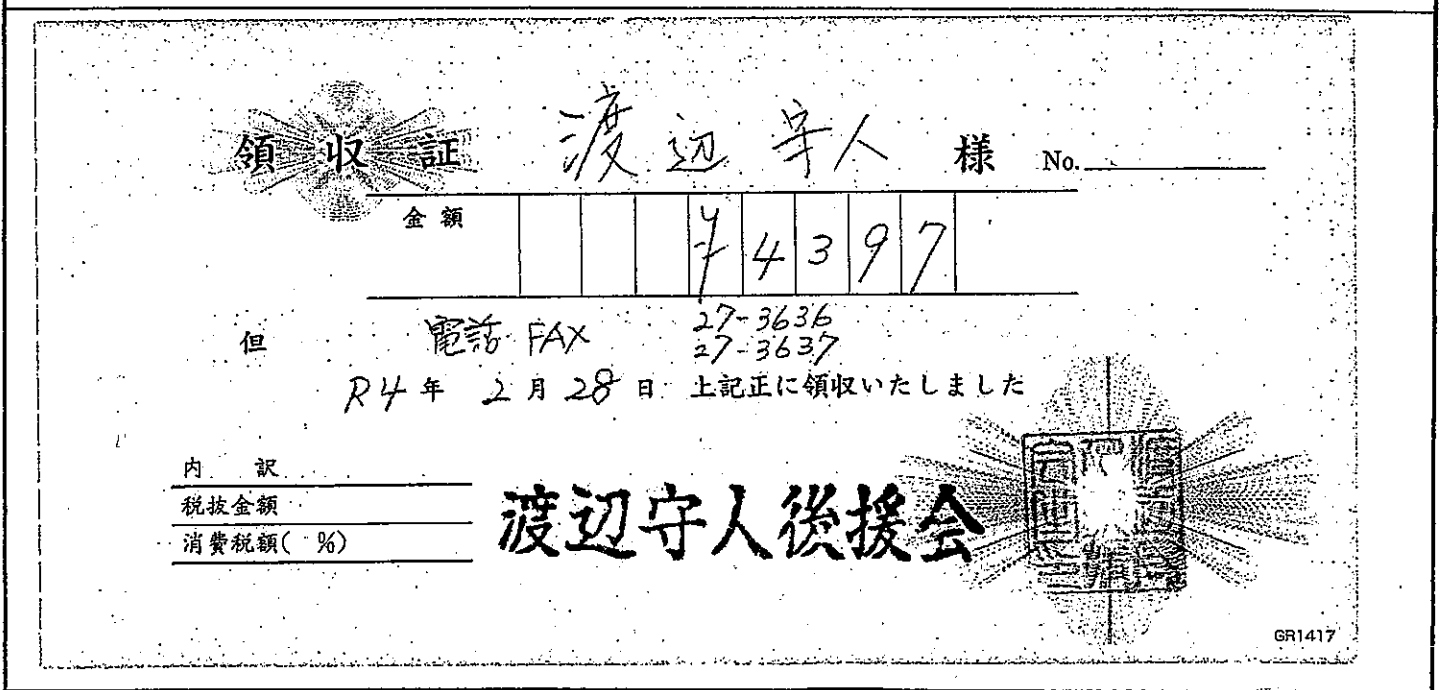 領収証 渡辺守人 様 No.
金額 ¥4397
但 電話 FAX 27-3636
27-3637
R4年 2月28日 上記正に領収いたしました
内 訳
税抜金額
消費税額( %)
渡辺守人後援会
GR1417